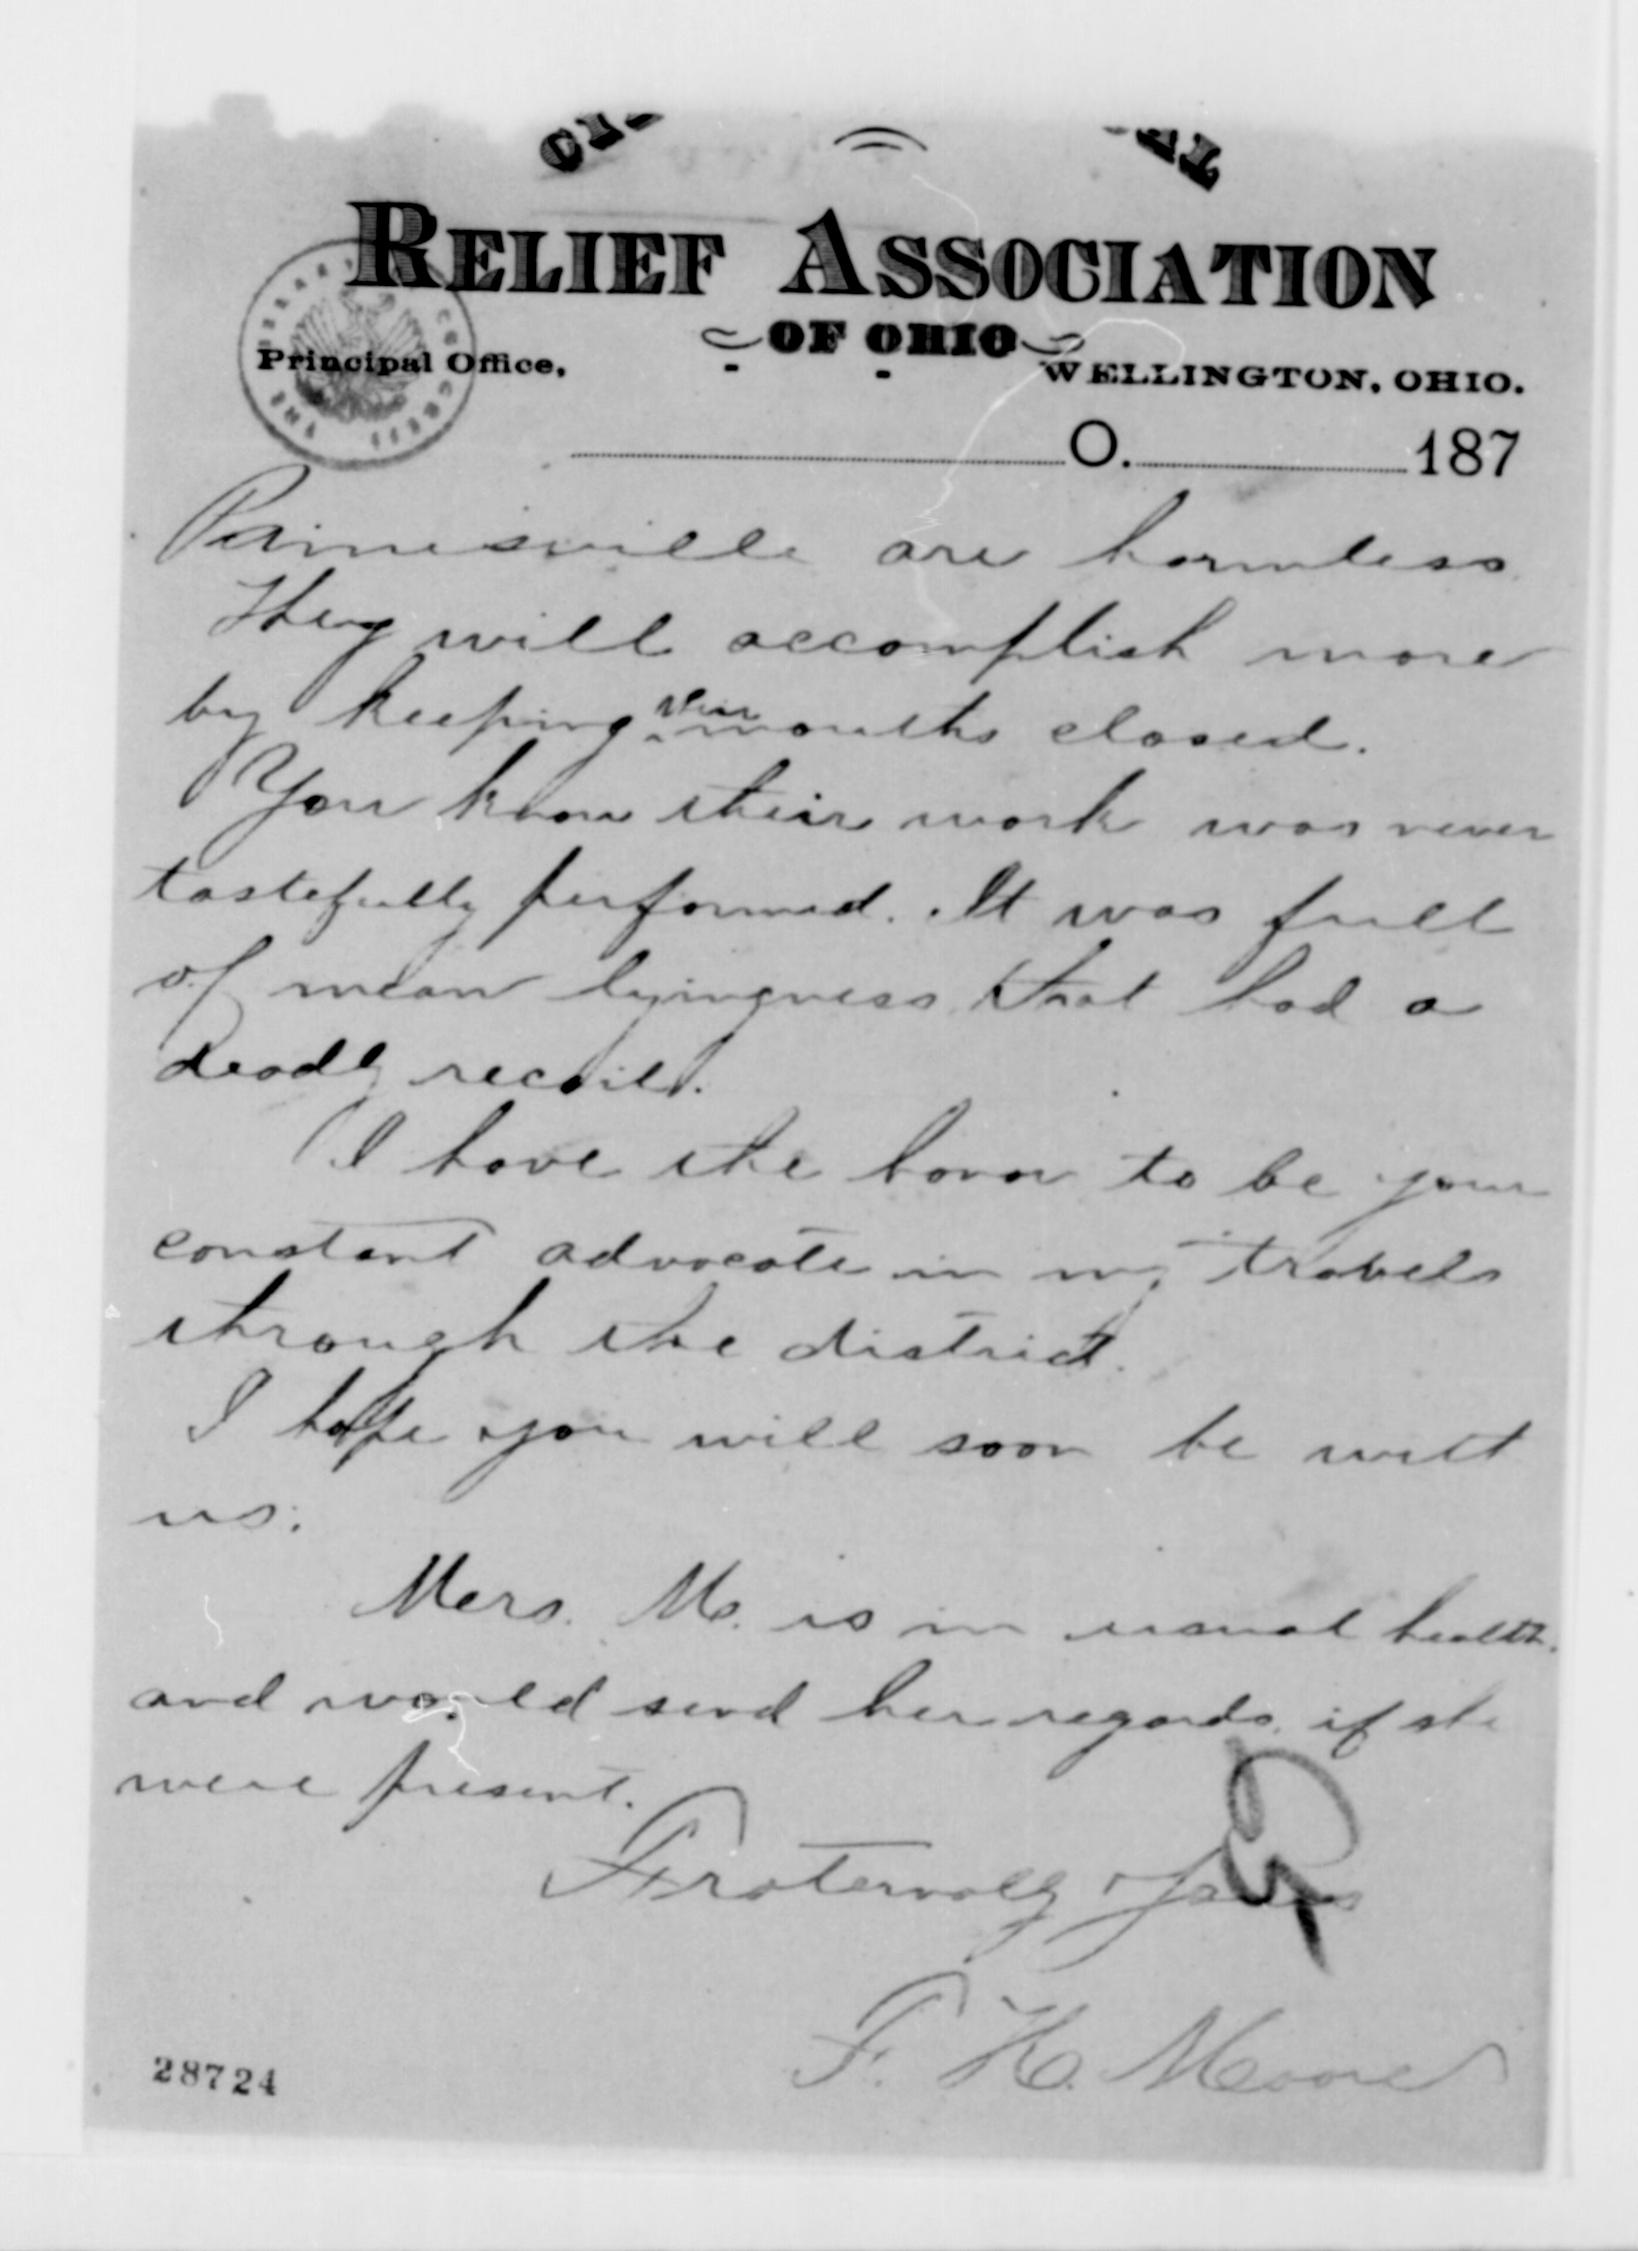 RELIEF ASSOCIATION
OF OHIO
Principal Office, WELLINGTON, OHIO.
O. 187
Painesville are harmless
They will accomplish more
by keeping their mouths closed.
You know their work was never
tastefully performed. It was full
of mean lyingness that had a
deadly recoil.
I have the honor to be your
constant advocate in my travels
through the district.
I hope you will soon be with
us.
Mers. M. is in usual health
and would send her regards if she
were present.
Fraternally yours
F. H. Moore
28724